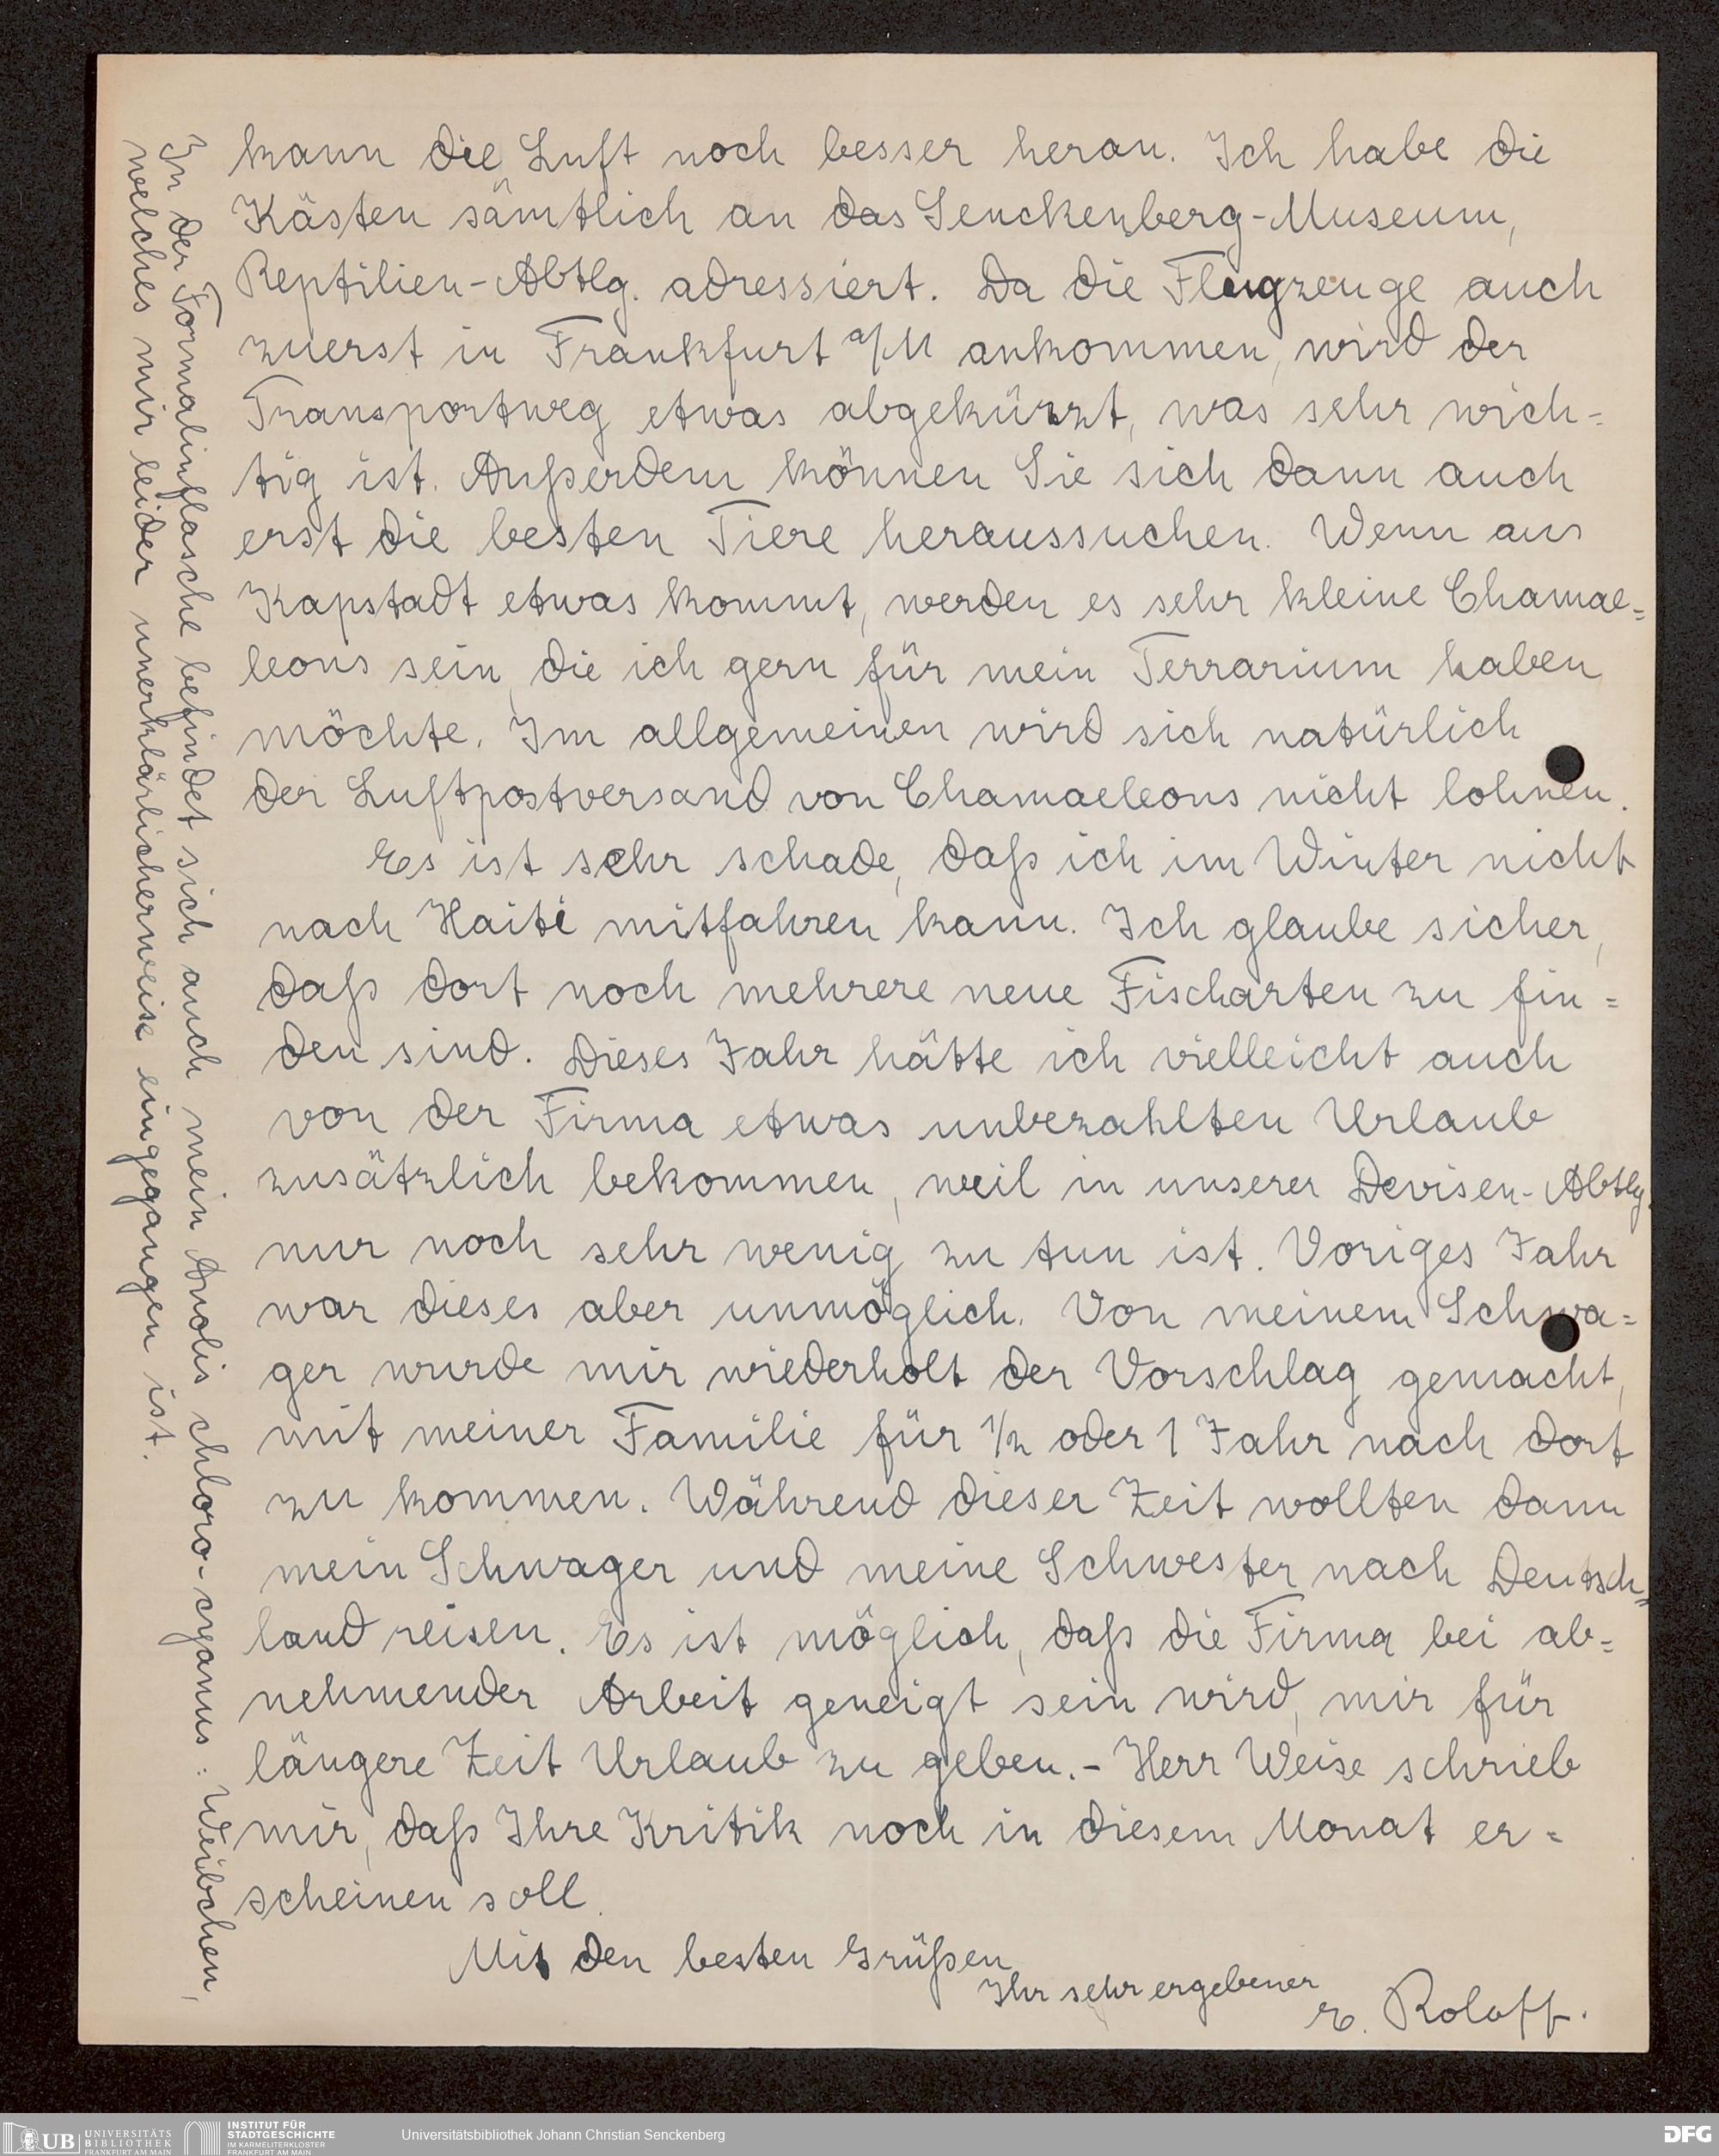 kann die Luft noch besser heran. Ich habe die
Kästen sämtlich an das Senckenberg-Museum,
Reptilien-Abtlg. adressiert. Da die Flugzeuge auch
zuerst in Frankfurt a/M ankommen, wird der
Transportweg etwas abgekürzt, was sehr wich=
tig ist. Außerdem können Sie sich dann auch
erst die besten Tiere heraussuchen. Wenn aus
Kapstadt etwas kommt, werden es sehr kleine Chamae=
leons sein, die ich gern für mein Terrarium haben
möchte. Im allgemeinen wird sich natürlich
der Luftpostversand von Chamaeleons nicht lohnen.
Es ist sehr schade, daß ich im Winter nicht
nach Haiti mitfahren kann. Ich glaube sicher,
daß dort noch mehrere neue Fischarten zu fin=
den sind. Dieses Jahr hätte ich vielleicht auch
von der Firma etwas unbezahlten Urlaub
zusätzlich bekommen, weil in unserer Devisen-Abtlg.
nur noch sehr wenig zu tun ist. Voriges Jahr
war dieses aber unmöglich. Von meinem Schwa=
ger wurde mir wiederholt der Vorschlag gemacht,
mit meiner Familie für 1/2 oder 1 Jahr nach dort
zu kommen. Während dieser Zeit wollten dann
mein Schwager und meine Schwester nach Deutsch=
land reisen. Es ist möglich, daß die Firma bei ab=
nehmender Arbeit geneigt sein wird, mir für
längere Zeit Urlaub zu geben.- Herr Weise schrieb
mir, daß Ihre Kritik noch in diesem Monat er=
scheinen soll.
Mit den besten Grüßen
Ihr sehr ergebener
E. Roloff.
In der Formalinflasche befindet sich auch mein Anolis chloro-cyanus: Weibchen,
welches mir leider unerklärlicherweise eingegangen ist.
UB UNIVERSITÄTS
BIBLIOTHEK
FRANKFURT AM MAIN
INSTITUT FÜR
STADTGESCHICHTE
IM KARMELITERKLOSTER
FRANKFURT AM MAIN
Universitätsbibliothek Johann Christian Senckenberg
DFG